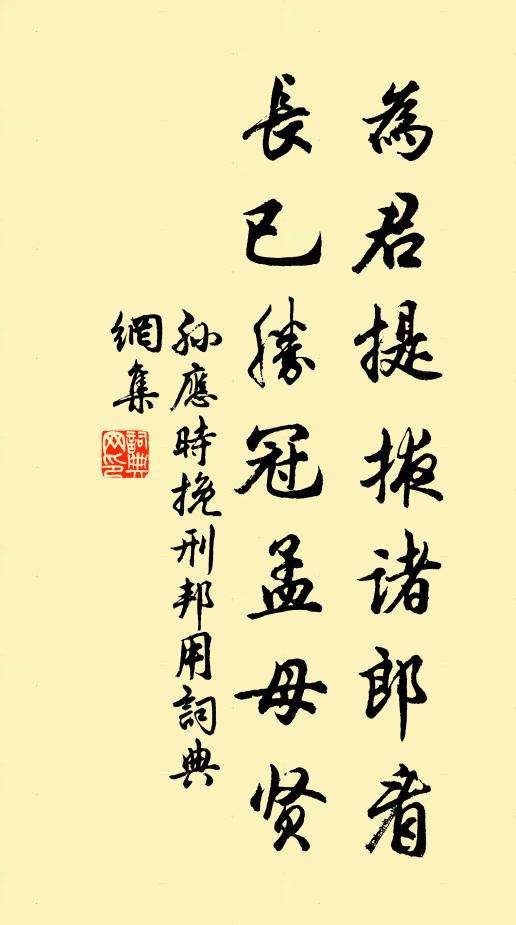 為君提掖諸郎看
長已勝冠孟母贤
孙應時挽刑邦用詞典
網集
詞典网印